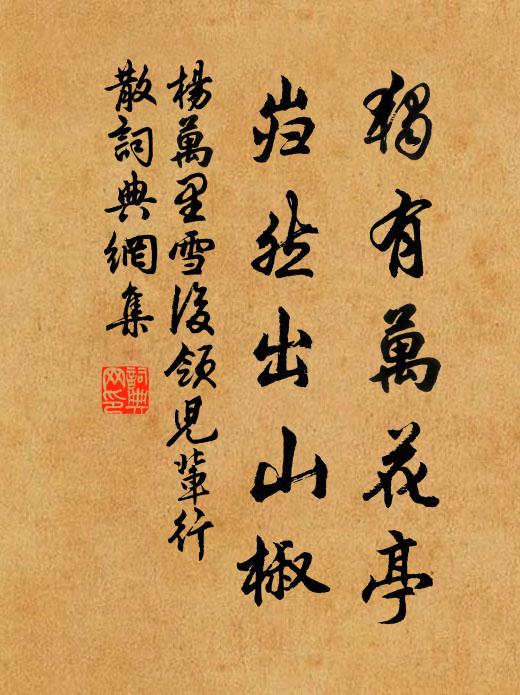 獨有萬花亭
岿然出山椒
楊萬里雪後領兒輩行
散詞典網集
詞典
网印